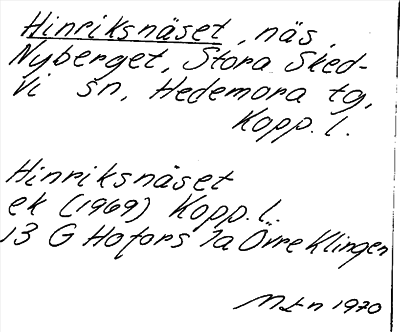 Hinriksnäset, näs,
Nyberget, Stora Sked-
vi sn, Hedemora tg,
Kopp. l.
Hinriksnäset
ek (1969) Kopp. l.
13 G Hofors 7a Örre Klingen
1970